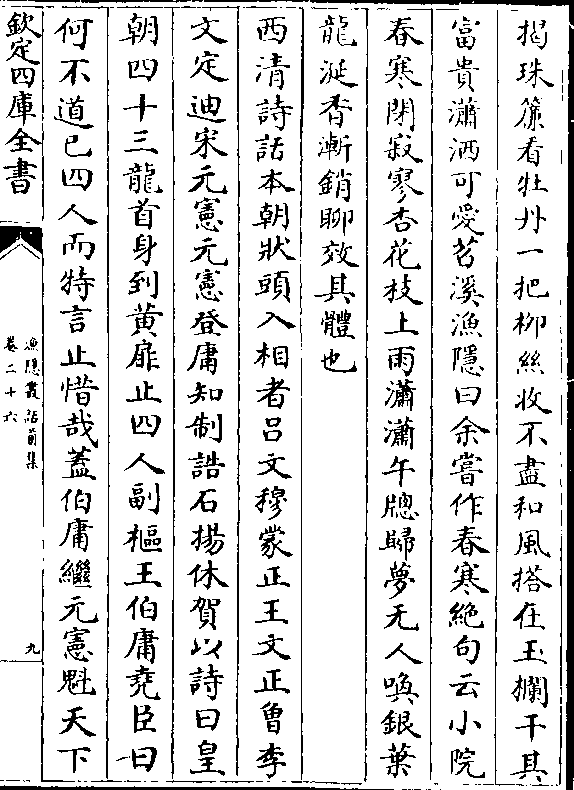 揭珠簾看牡丹一把柳絲收不盡和風搭在玉欄干其
富貴瀟洒可愛苕溪漁隱曰余嘗作春寒絕句云小院
春寒閉寂寥杏花枝上雨瀟瀟午牕歸夢无人喚銀葉
龍涎香漸銷聊效其體也
西清詩話本朝狀頭入相者吕文穆蒙正王文正曾李
文定迪宋元憲元憲登庸知制誥石揚休賀以詩曰皇
朝四十三龍首身到黄扉止四人副樞王伯庸堯臣曰
何不道已四人而特言止惜哉蓋伯庸繼元憲魁天下
欽定四庫全書
漁隱叢話前集
卷二十六
九